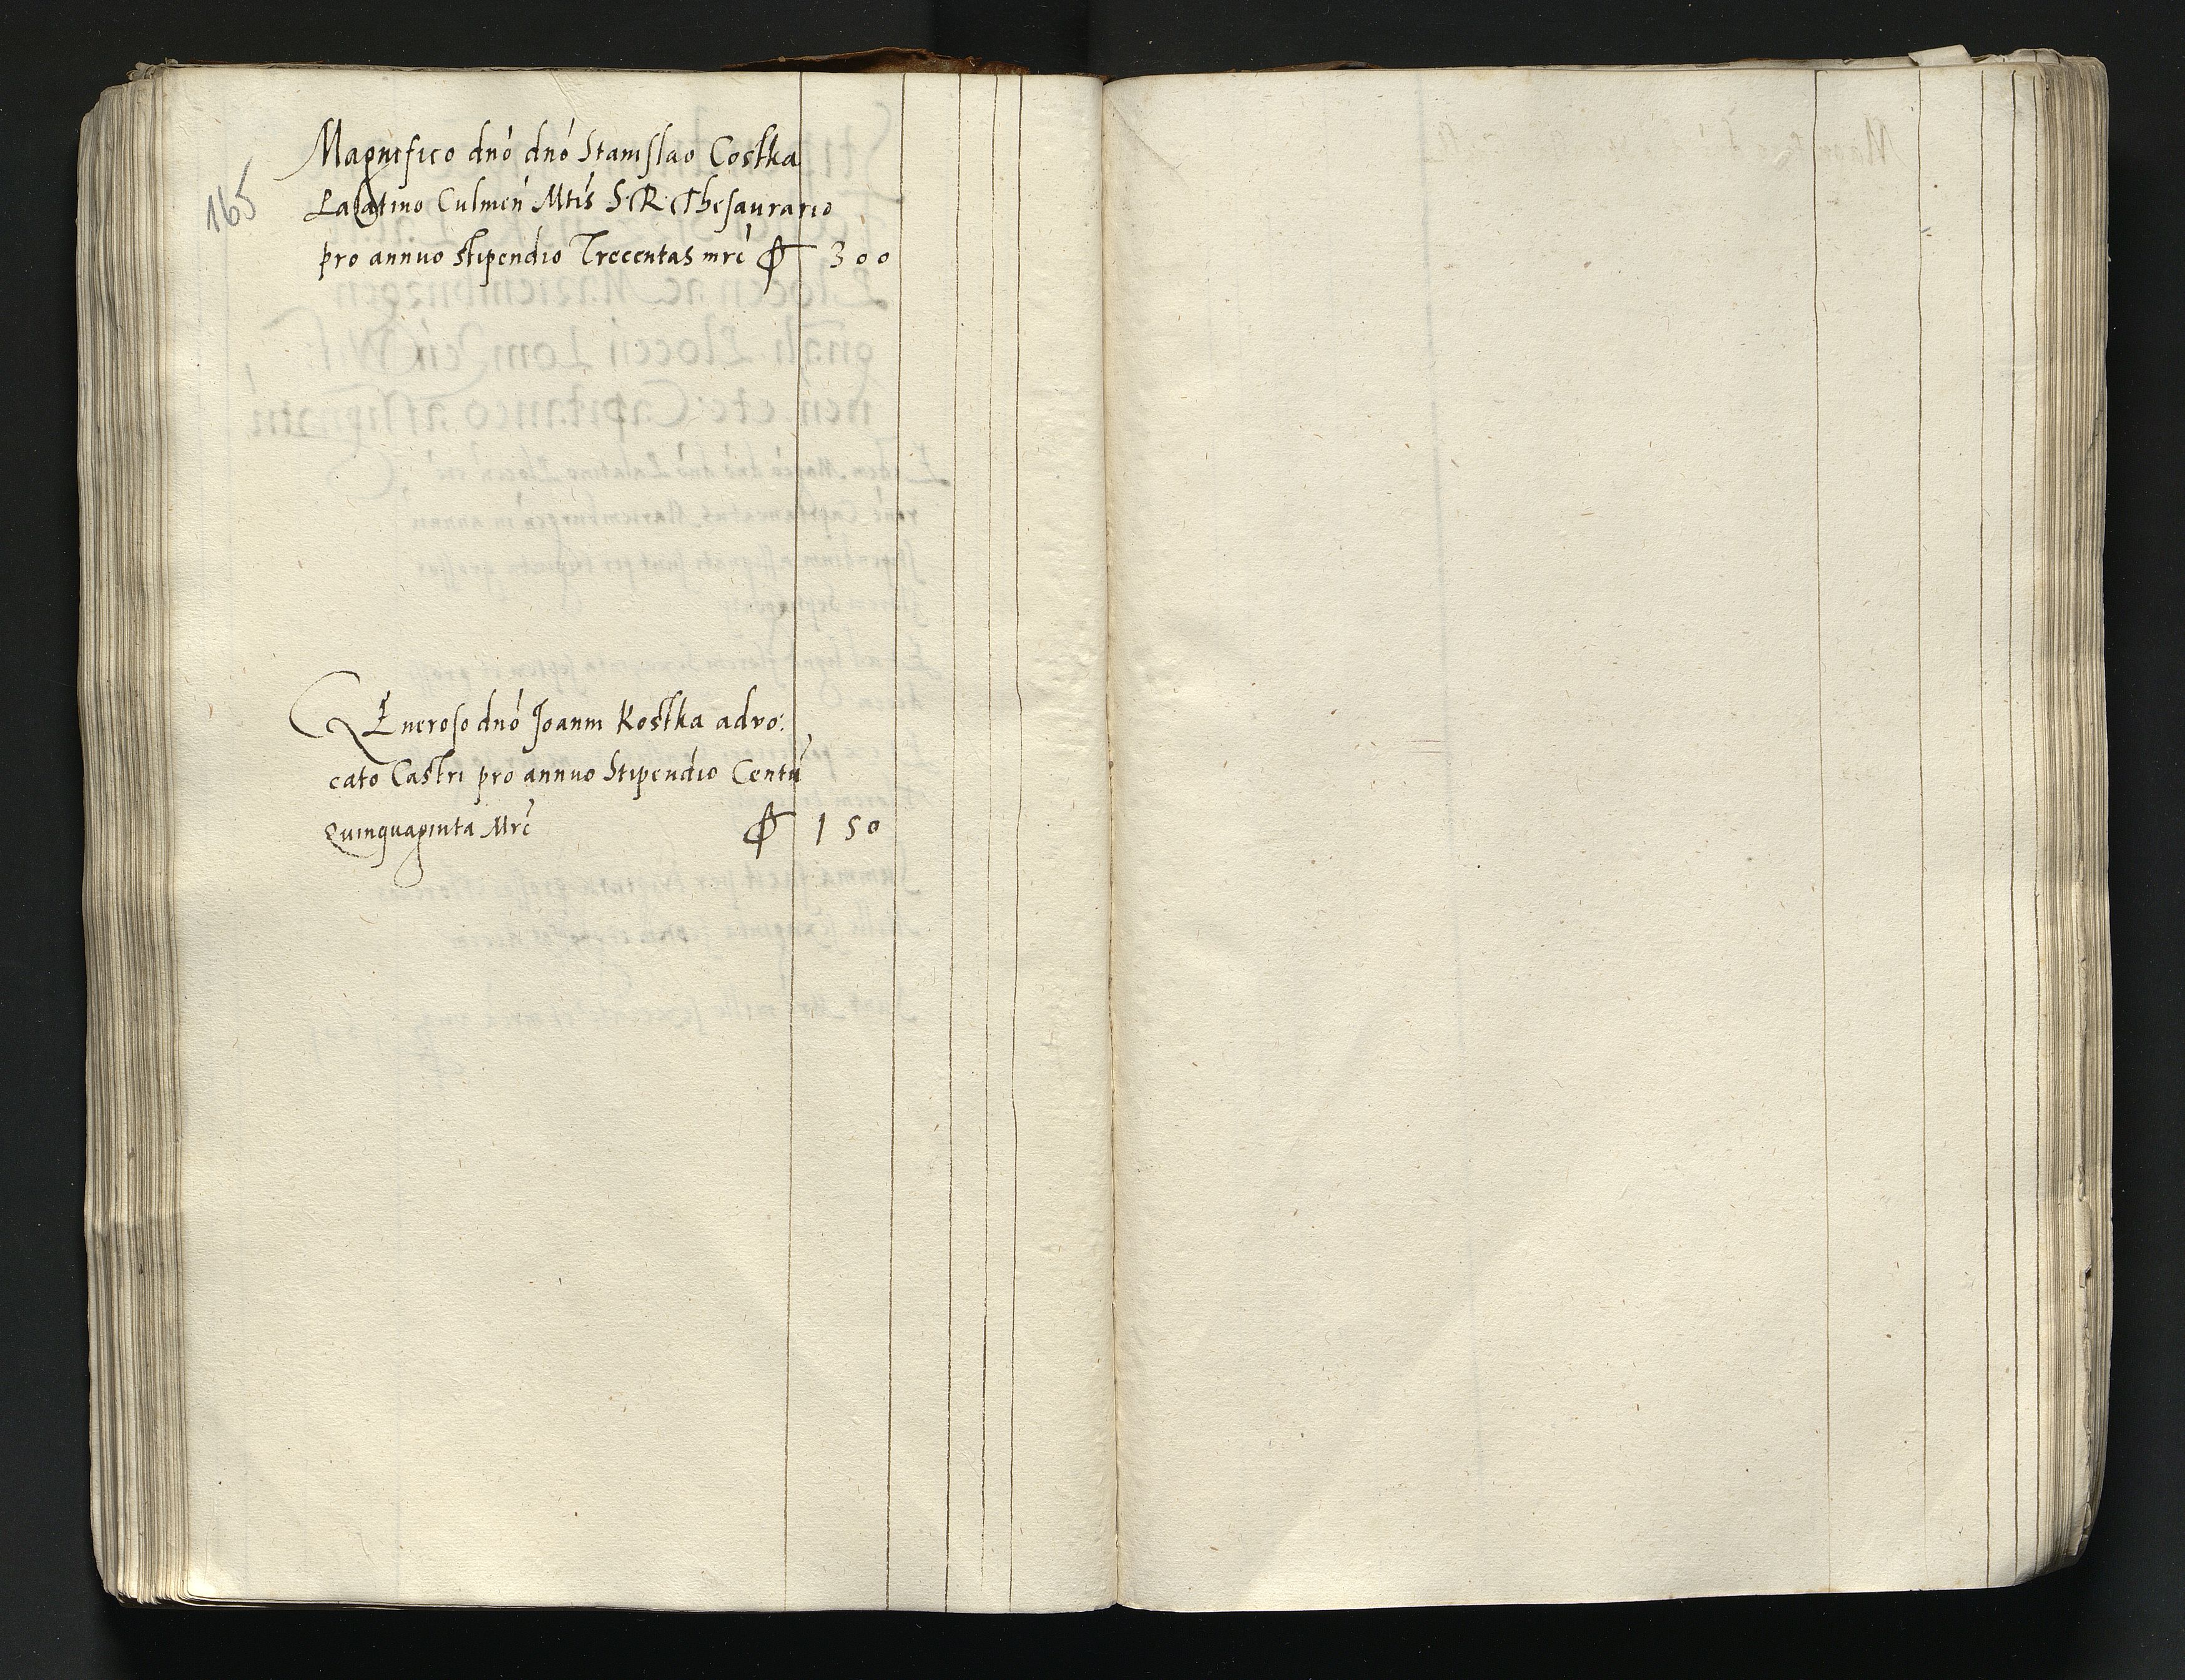 165
Magnifico dnó dnó Stanislao Costka
Palatino Culmeń Mtis S. R. Thesaurario
pro annuo stipendio Trecentas mrć 300
Generoso dnó Joanni Kostka advo:
cato Castri pro annuo Stipendio Centū
Quinquaginta Mrć 150